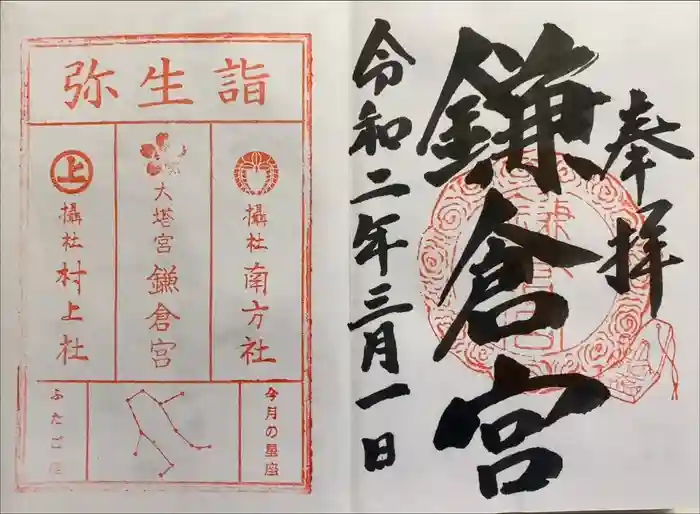 奉拝
鎌倉宮
令和二年三月一日
弥生詣
摂社 南方社
大塔宮 鎌倉宮
上
摂社 村上社
今月の星座
ふたご座